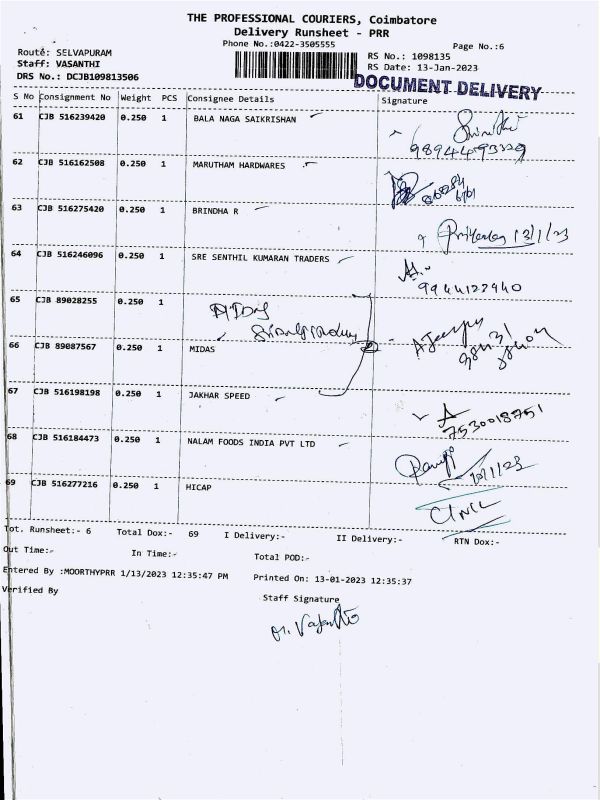 THE PROFESSIONAL COURIERS, Coimbatore
Delivery Runsheet - PRR
Phone No.:0422-3505555
Page No.:6
Route: SELVAPURAM
RS No.: 1098135
Staff: VASANTHI
RS Date: 13-Jan-2023
DRS No.: DCJB109813506
DOCUMENT DELIVERY
S No Consignment No Weight PCS Consignee Details Signature
61 CJB 516239420 0.250 1 BALA NAGA SAIKRISHAN
62 CJB 516162508 0.250 1 MARUTHAM HARDWARES
63 CJB 516275420 0.250 1 BRINDHA R
13/1/23
64 CJB 516246096 0.250 1 SRE SENTHIL KUMARAN TRADERS
9944122940
65 CJB 89028255 0.250 1
66 CJB 89087567 0.250 1 MIDAS
67 CJB 516198198 0.250 1 JAKHAR SPEED
7530018751
68 CJB 516184473 0.250 1 NALAM FOODS INDIA PVT LTD
69 CJB 516277216 0.250 1 HICAP
Tot. Runsheet:- 6 Total Dox:- 69 I Delivery:- II Delivery:- RTN Dox:-
Out Time:- In Time:- Total POD:-
Entered By :MOORTHYPRR 1/13/2023 12:35:47 PM Printed On: 13-01-2023 12:35:37
Verified By
Staff Signature